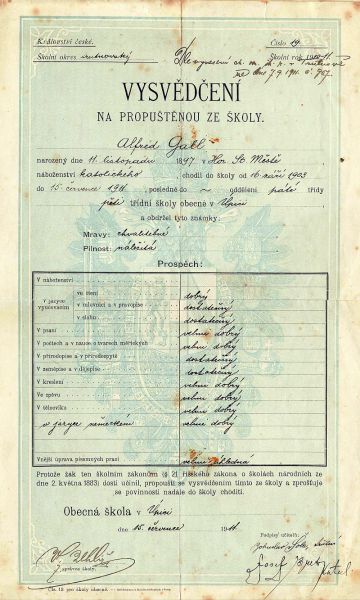 Království české.
Číslo 19
Školní okres trutnovský
Školní rok 1910-11
Dle vynesení
ze dne 7.9. 1911 č. 957.
VYSVĚDČENÍ
NA PROPUŠTĚNOU ZE ŠKOLY.
Alfred Gabl
narozený dne 11. listopadu 1897 v Hor. St. Městě
náboženství katolického, chodil do školy od 16 září 1903
do 15 července 1911, posledně do ~ oddělení páté třídy
pěti třídní školy obecné v Úpici
a obdržel tyto známky:
Mravy: chvalitebné
Pilnost: náležitá
Prospěch:
V náboženství
V jazyce vyučovacím
ve čtení dobrý
v mluvnici a v pravopise dostatečný
v slohu dostatečný
V psaní velmi dobrý
V počtech a v nauce o tvarech měřických velmi dobrý
V přírodopise a v přírodozpytě dostatečný
V zeměpise a v dějepise dostatečný
V kreslení velmi dobrý
Ve zpěvu velmi dobrý
V tělocviku velmi dobrý
v jazyce německém velmi dobrý
Vnější úprava písemných prací velmi úhledná
Protože žák ten školním zákonům (§ 21 říšského zákona o školách národních ze
dne 2. května 1883) dosti učinil, propouští se vysvědčením tímto ze školy a zprošťuje
se povinnosti nadále do školy choditi.
Obecná škola v Úpici
dne 15. července 1911
Podpisy učitelů:
Josef
správce školy.
Čís. 10 pro školy obecné.